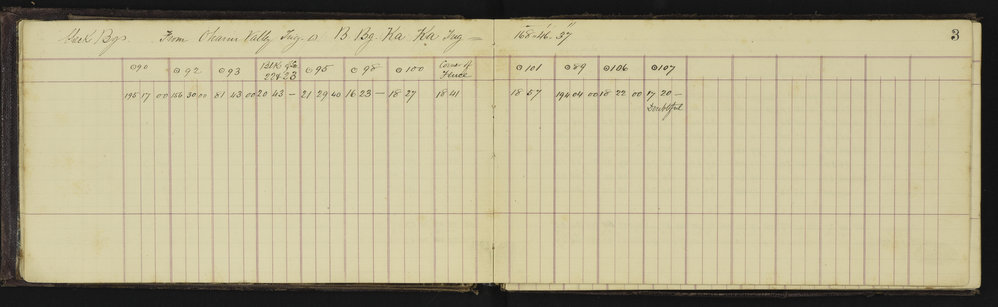 From Charm Valley Trig a B Bg Ka Ka Trig = 168-46'-37" 3
⊙90 ⊙92 ⊙93 Blk 22&23 ⊙95 ⊙98 ⊙100 Cor of Fence ⊙101 ⊙89 ⊙106 ⊙107
195 17 00 156 30 00 81 43 00 20 43 — 21 29 40 16 23 — 18 27 18 41 18 57 194 04 00 18 22 00 17 20 —
Doubtful